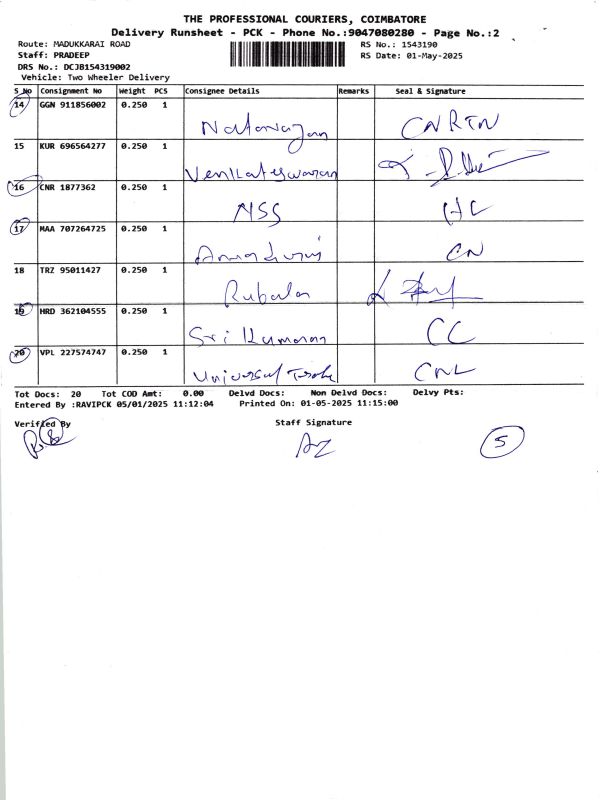 THE PROFESSIONAL COURIERS, COIMBATORE
Delivery Runsheet - PCK - Phone No.:9047080280 - Page No.:2
Route: MADUKKARAI ROAD
RS No.: 1543190
Staff: PRADEEP
RS Date: 01-May-2025
DRS No.: DCJB154319002
Vehicle: Two Wheeler Delivery
S No Consignment No Weight PCS Consignee Details Remarks Seal & Signature
14 GGN 911856002 0.250 1
Natarajan CNRTN
15 KUR 696564277 0.250 1
Venkateswaran
16 CNR 1877362 0.250 1
NSS HC
17 MAA 707264725 0.250 1
CN
18 TRZ 95011427 0.250 1
Rubala
19 HRD 362104555 0.250 1
Sri Kumaran CC
20 VPL 227574747 0.250 1
Universal CNL
Tot Docs: 20 Tot COD Amt: 0.00 Delvd Docs: Non Delvd Docs: Delvy Pts:
Entered By :RAVIPCK 05/01/2025 11:12:04 Printed On: 01-05-2025 11:15:00
Verified By Staff Signature
5